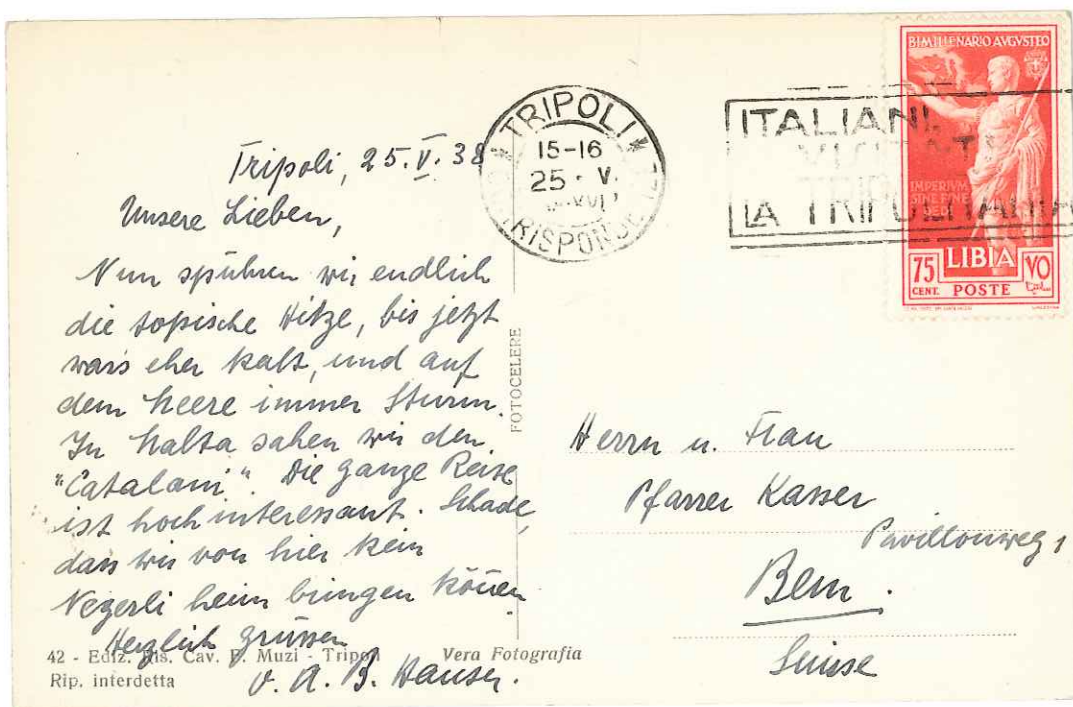 Tripoli, 25.V.38
Unsere Lieben,
Nun spühren wir endlich
die tropische Hitze, bis jetzt
war's eher kalt, und auf
dem Meere immer Sturm.
In Malta sahen wir den
"Catalani". Die ganze Reise
ist hochinteressant. Schade,
dass wir von hier kein
Negerli heim bringen können
Herzlich grüssen
v. A. B. Hauser.
42 - Ediz. Ris. Cav. F. Muzi - Tripoli Vera Fotografia
Rip. interdetta
FOTOCELERE
TRIPOLI
15-16
25 · V.
CORRISPONDENZE
ITALIANI,
VISITATE
LA TRIPOLITANIA
BIMILLENARIO AVGVSTEO
IMPERIVM
SINE FINE
LIBIA
75
CENT. POSTE
Herrn u. Frau
Pfarrer Kasser
Pavillonweg 1
Bern.
Suisse